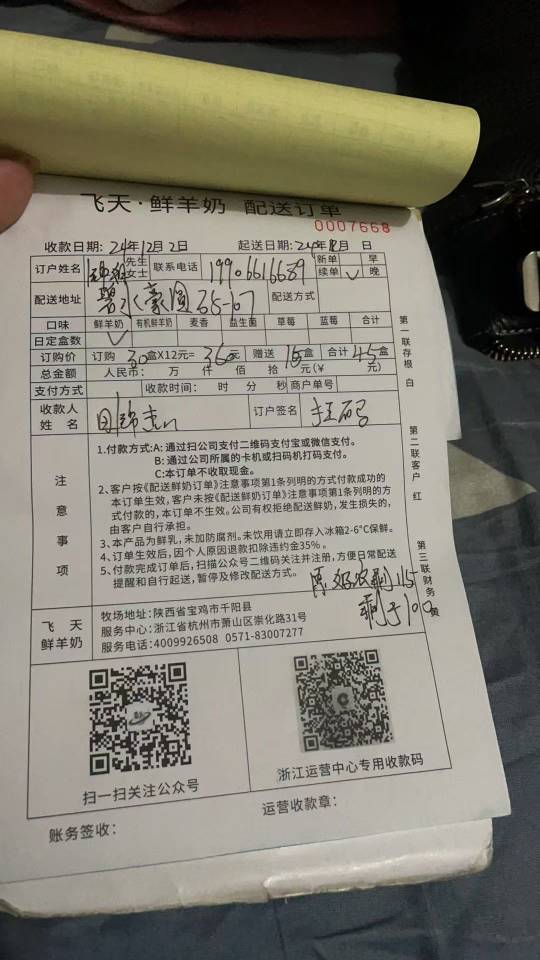 飞天·鲜羊奶 配送订单
0007668
收款日期: 24年12月2日 起送日期: 24年12月 日
订户姓名 先生 女士 联系电话 19906616689 新单 续单 ✓ 早 晚
配送地址 碧水豪园65-67 配送方式
口味 鲜羊奶 有机鲜羊奶 麦香 益生菌 草莓 蓝莓 合计
日定盒数 ✓
订购价 订购 30盒X12元= 360元 赠送 15盒 合计 45盒
总金额 人民币: 万 仟 佰 拾 元(¥ 元)
支付方式 收款时间: 时 分 秒 商户单号
收款人姓名 订户签名 扫码
注意事项
1.付款方式:A: 通过扫公司支付二维码支付宝或微信支付。
B: 通过公司所属的卡机或扫码机打码支付。
C:本订单不收取现金。
2、客户按《配送鲜奶订单》注意事项第1条列明的方式付款成功的
本订单生效,客户未按《配送鲜奶订单》注意事项第1条列明的方
式付款的,本订单不生效。公司有权拒绝配送鲜奶,发生损失的,
由客户自行承担。
3、本产品为鲜乳,未加防腐剂。未饮用请立即存入冰箱2-6°C保鲜。
4、订单生效后,因个人原因退款扣除违约金35%。
5、付款完成订单后,扫描公众号二维码关注并注册,方便日常配送
提醒和自行起送,暂停及修改配送方式。
原奶 剩115
剩于100
飞天鲜羊奶
牧场地址:陕西省宝鸡市千阳县
服务中心:浙江省杭州市萧山区崇化路31号
服务电话:4009926508 0571-83007277
第一联存根 白
第二联客户 红
第三联财务 黄
扫一扫关注公众号
浙江运营中心专用收款码
账务签收: 运营收款章: